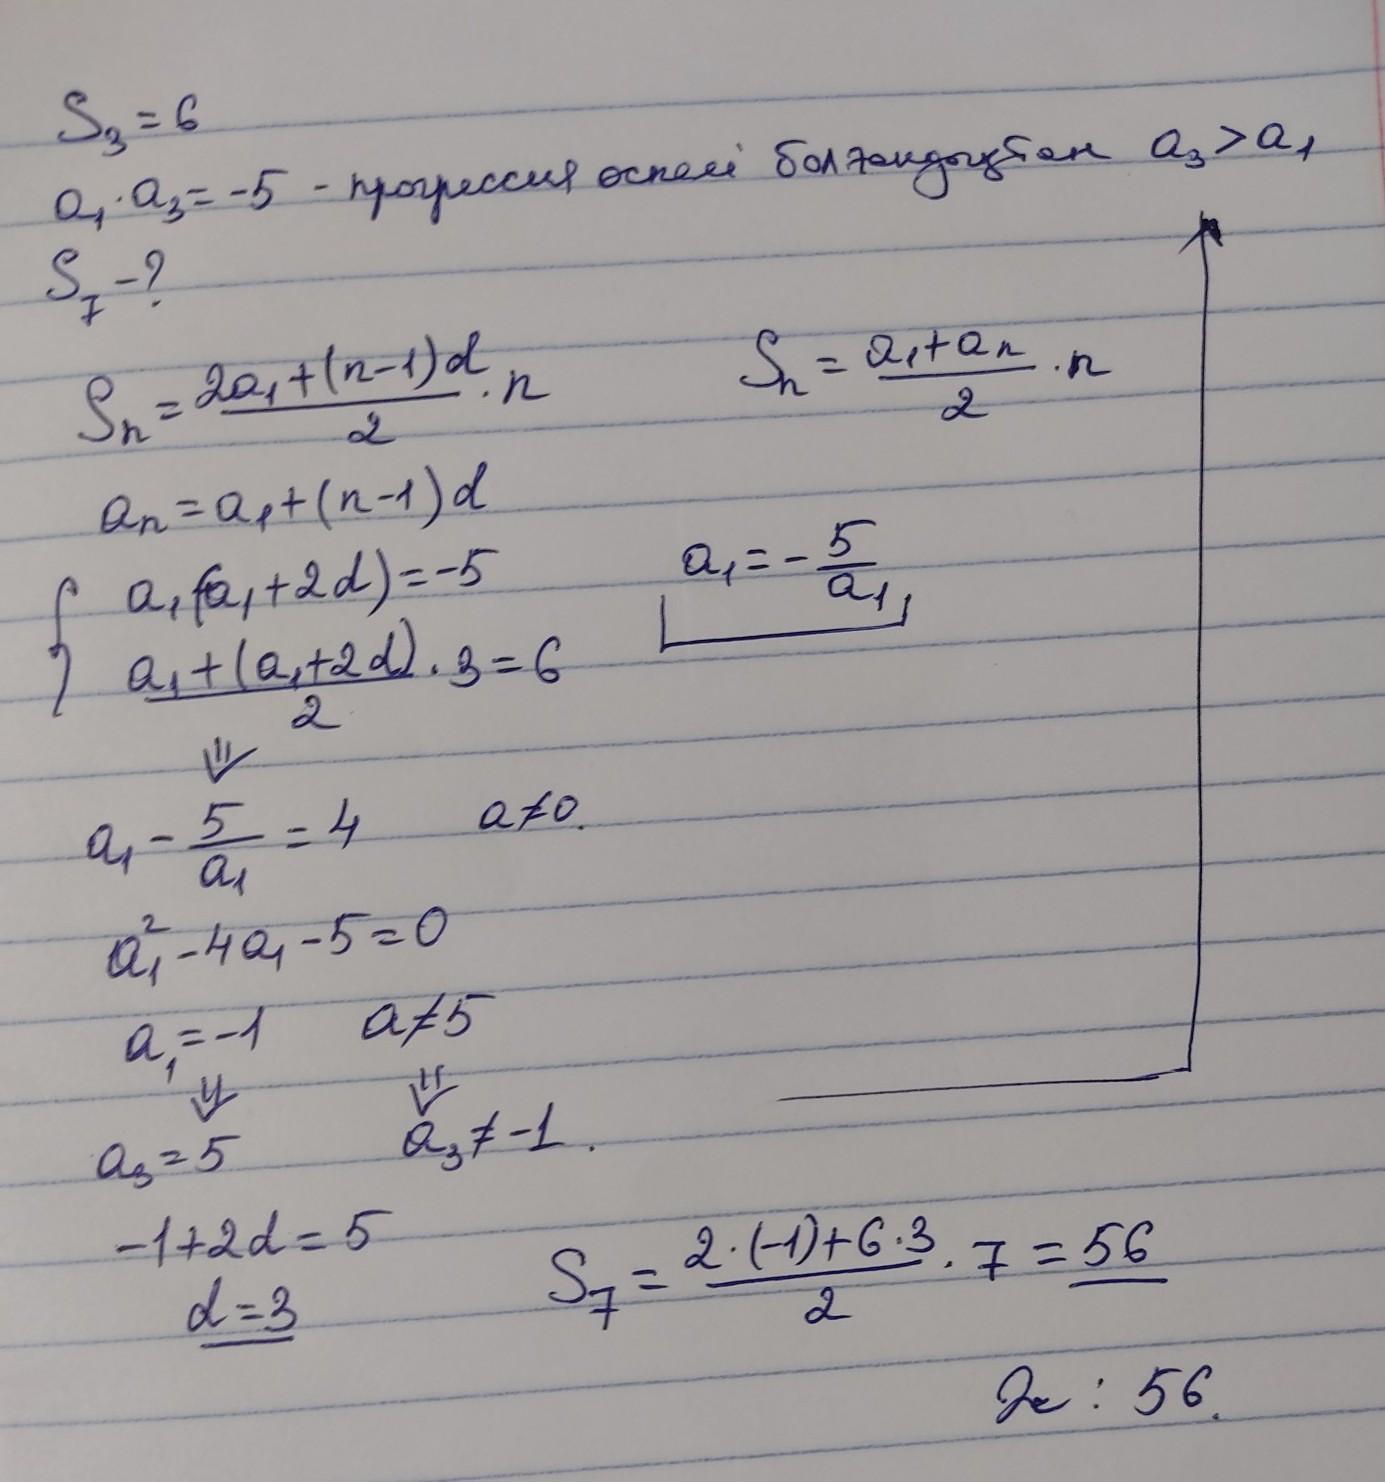 S₃ = 6
a₁·a₃ = -5 - прогрессия өспелі болғандықтан a₃ > a₁
S₇ - ?
Sₙ = (2a₁+(n-1)d)/2 · n    Sₙ = (a₁+aₙ)/2 · n
aₙ = a₁+(n-1)d
{ a₁(a₁+2d) = -5    a₁ = -5/a₁
(a₁+(a₁+2d))/2 · 3 = 6
⇓
a₁ - 5/a₁ = 4    a≠0.
a₁² - 4a₁ - 5 = 0
a₁ = -1    a≠5
⇓    ⇓
a₃ = 5    a₃ ≠ -1.
-1+2d = 5    S₇ = (2·(-1)+6·3)/2 · 7 = 56
d = 3
Ж: 56.